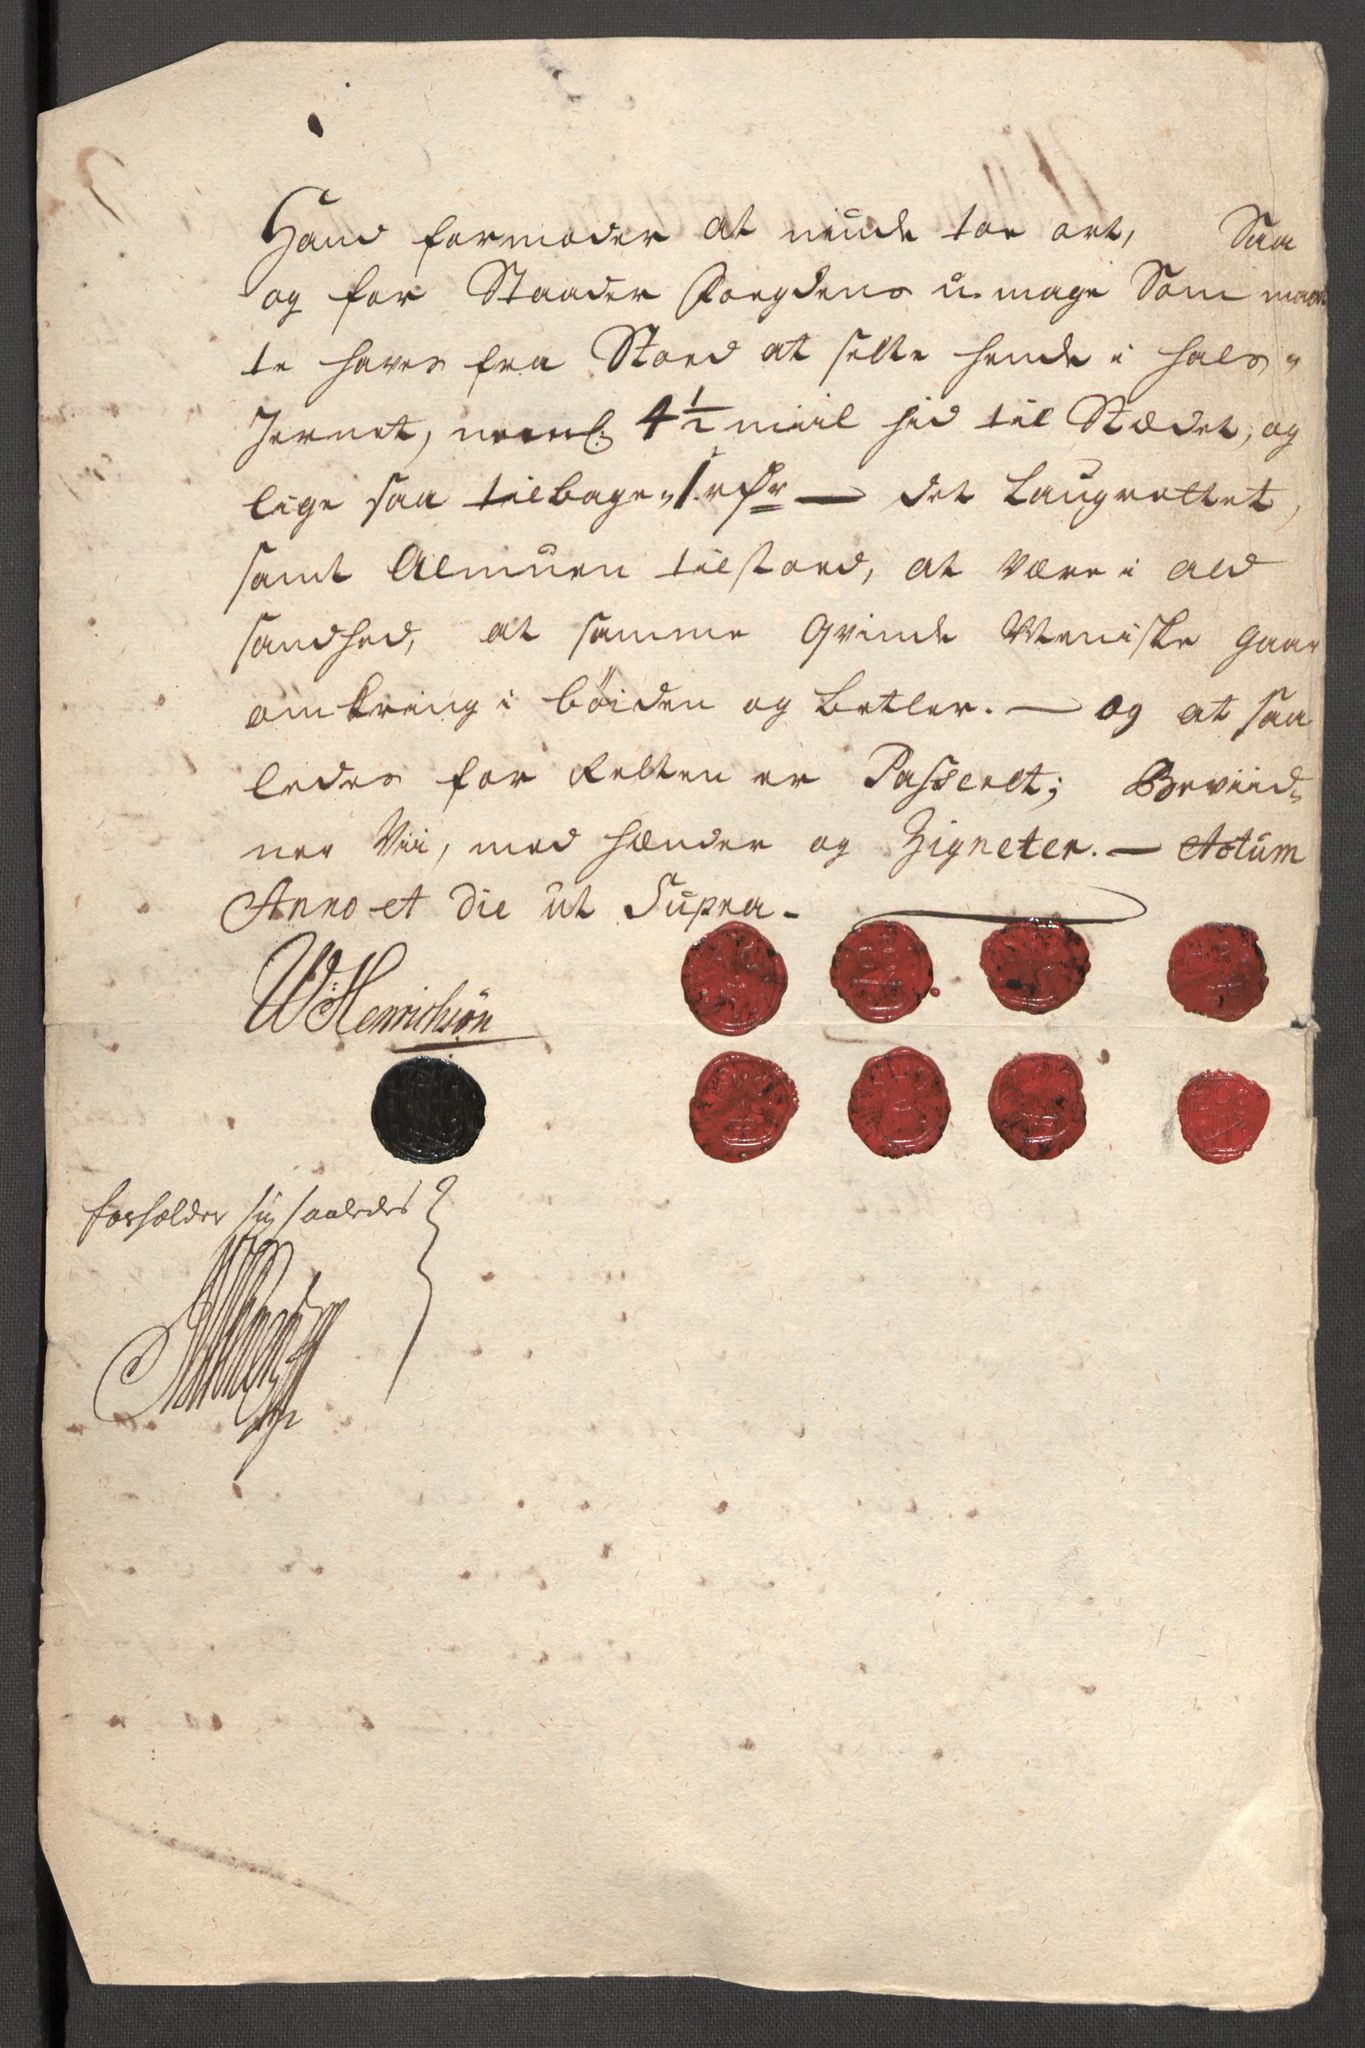 Hand formoder at niude toe ort, Saa
og for Staader Foegdens u-mage Som maa
te haves fra Stord at sette hende i hals-
Jernet, neml: 4½ miil hid til Stædet, og
lige saa tilbage, 1 rdr — det Laugrettet,
samt Almuen tilstoed, at være i ald
sandhed, at samme Qvinde Meniske gaar
omkring i bøiden og betler. — og at saa
ledes for Retten er Passeret; Beviid-
ner Vii, med hænder og Zigneter. — Actum
Anno et die ut Supra.
W Henrichsøn
forholder sig saaledes